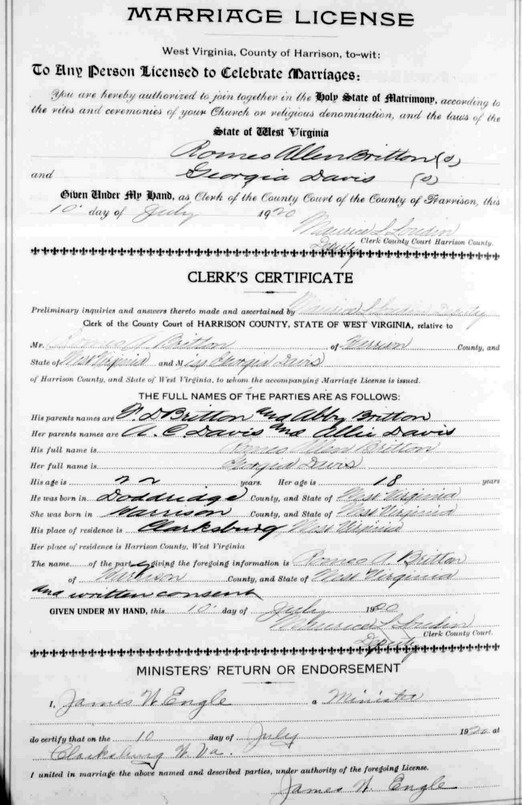 MARRIAGE LICENSE
West Virginia, County of Harrison, to-wit:
To Any Person Licensed to Celebrate Marriages:
You are hereby authorized to join together in the Holy State of Matrimony, according to
the rites and ceremonies of your Church or religious denomination, and the laws of the
State of West Virginia
Romeo Allen Britton (s)
and Georgia Davis (s)
Given Under My Hand, as Clerk of the County Court of the County of Harrison, this
10 day of July 1920
Deputy Clerk County Court Harrison County.
CLERK'S CERTIFICATE
Preliminary inquiries and answers thereto made and ascertained by Deputy
Clerk of the County Court of HARRISON COUNTY, STATE OF WEST VIRGINIA, relative to
Mr. Romeo A. Britton of Harrison County, and
State of West Virginia and Miss Georgia Davis
of Harrison County, and State of West Virginia, to whom the accompanying Marriage License is issued.
THE FULL NAMES OF THE PARTIES ARE AS FOLLOWS:
His parents names are D Britton and Abby Britton
Her parents names are A. C. Davis and Allie Davis
His full name is Romeo Allen Britton
Her full name is Georgia Davis
His age is 22 years. Her age is 18 years
He was born in Doddridge County, and State of West Virginia
She was born in Harrison County, and State of West Virginia
His place of residence is Clarksburg West Virginia
Her place of residence is Harrison County, West Virginia
The name of the party giving the foregoing information is Romeo A. Britton
of Harrison County, and State of West Virginia
and written consent
GIVEN UNDER MY HAND, this 10 day of July 1920
Clerk County Court.
Deputy
MINISTERS' RETURN OR ENDORSEMENT
I, James W. Engle a Minister
do certify that on the 10 day of July 1920 at
Clarksburg W. Va.
I united in marriage the above named and described parties, under authority of the foregoing License.
James W. Engle